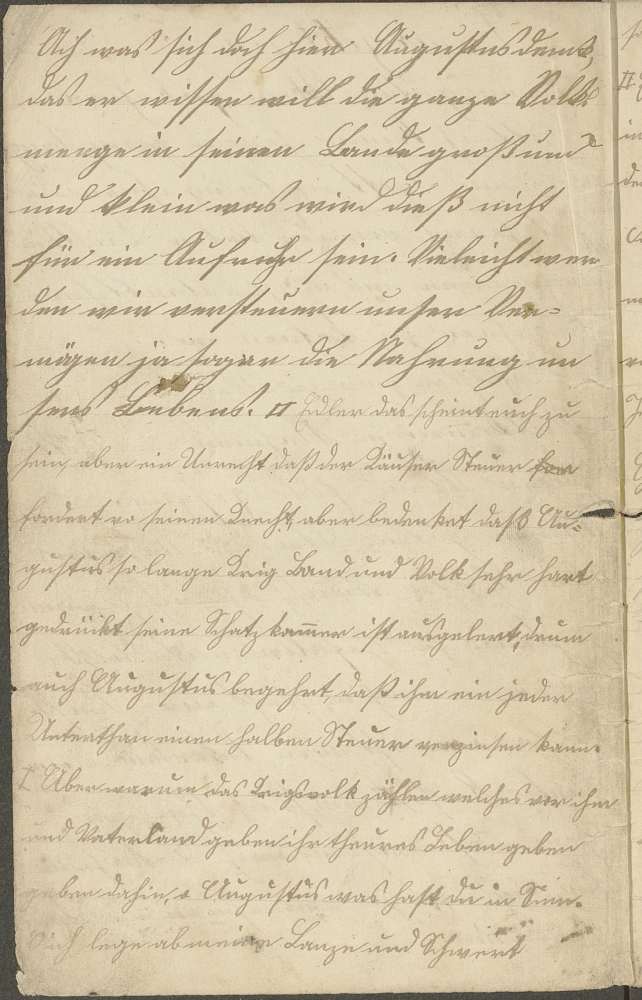 Ach was sich doch hier Augustus denkt,
das er wissen will die ganze Volks
menge in seinen Lande groß und
und klein was wird dieß nicht
für ein Aufruhr sein. Vieleicht wer
den wir versteuern unser Ver=
mögen ja sogar die Nahrung un
sers Lebens. II Edler das scheint euch zu
sein, aber ein Unrecht daß der Käuser Steuer
fordert vo seinen Knecht, aber bedenket daß Au=
gustus so lange Krig Land und Volk sehr hart
gedrückt seine Schatzkammer ist ausgelert, drum
auch Augustus begehrt, daß ihm ein jeder
Unterthan einen halben Steuer verzinsen kann.
I Aber warum das Krigsvolk zählen welches vor ihm
und Vaterland geben ihr theures Leben geben
geben dahin, o Augustus was hast du in Sinn.
Dich lege ab meine Lanze und Schwert